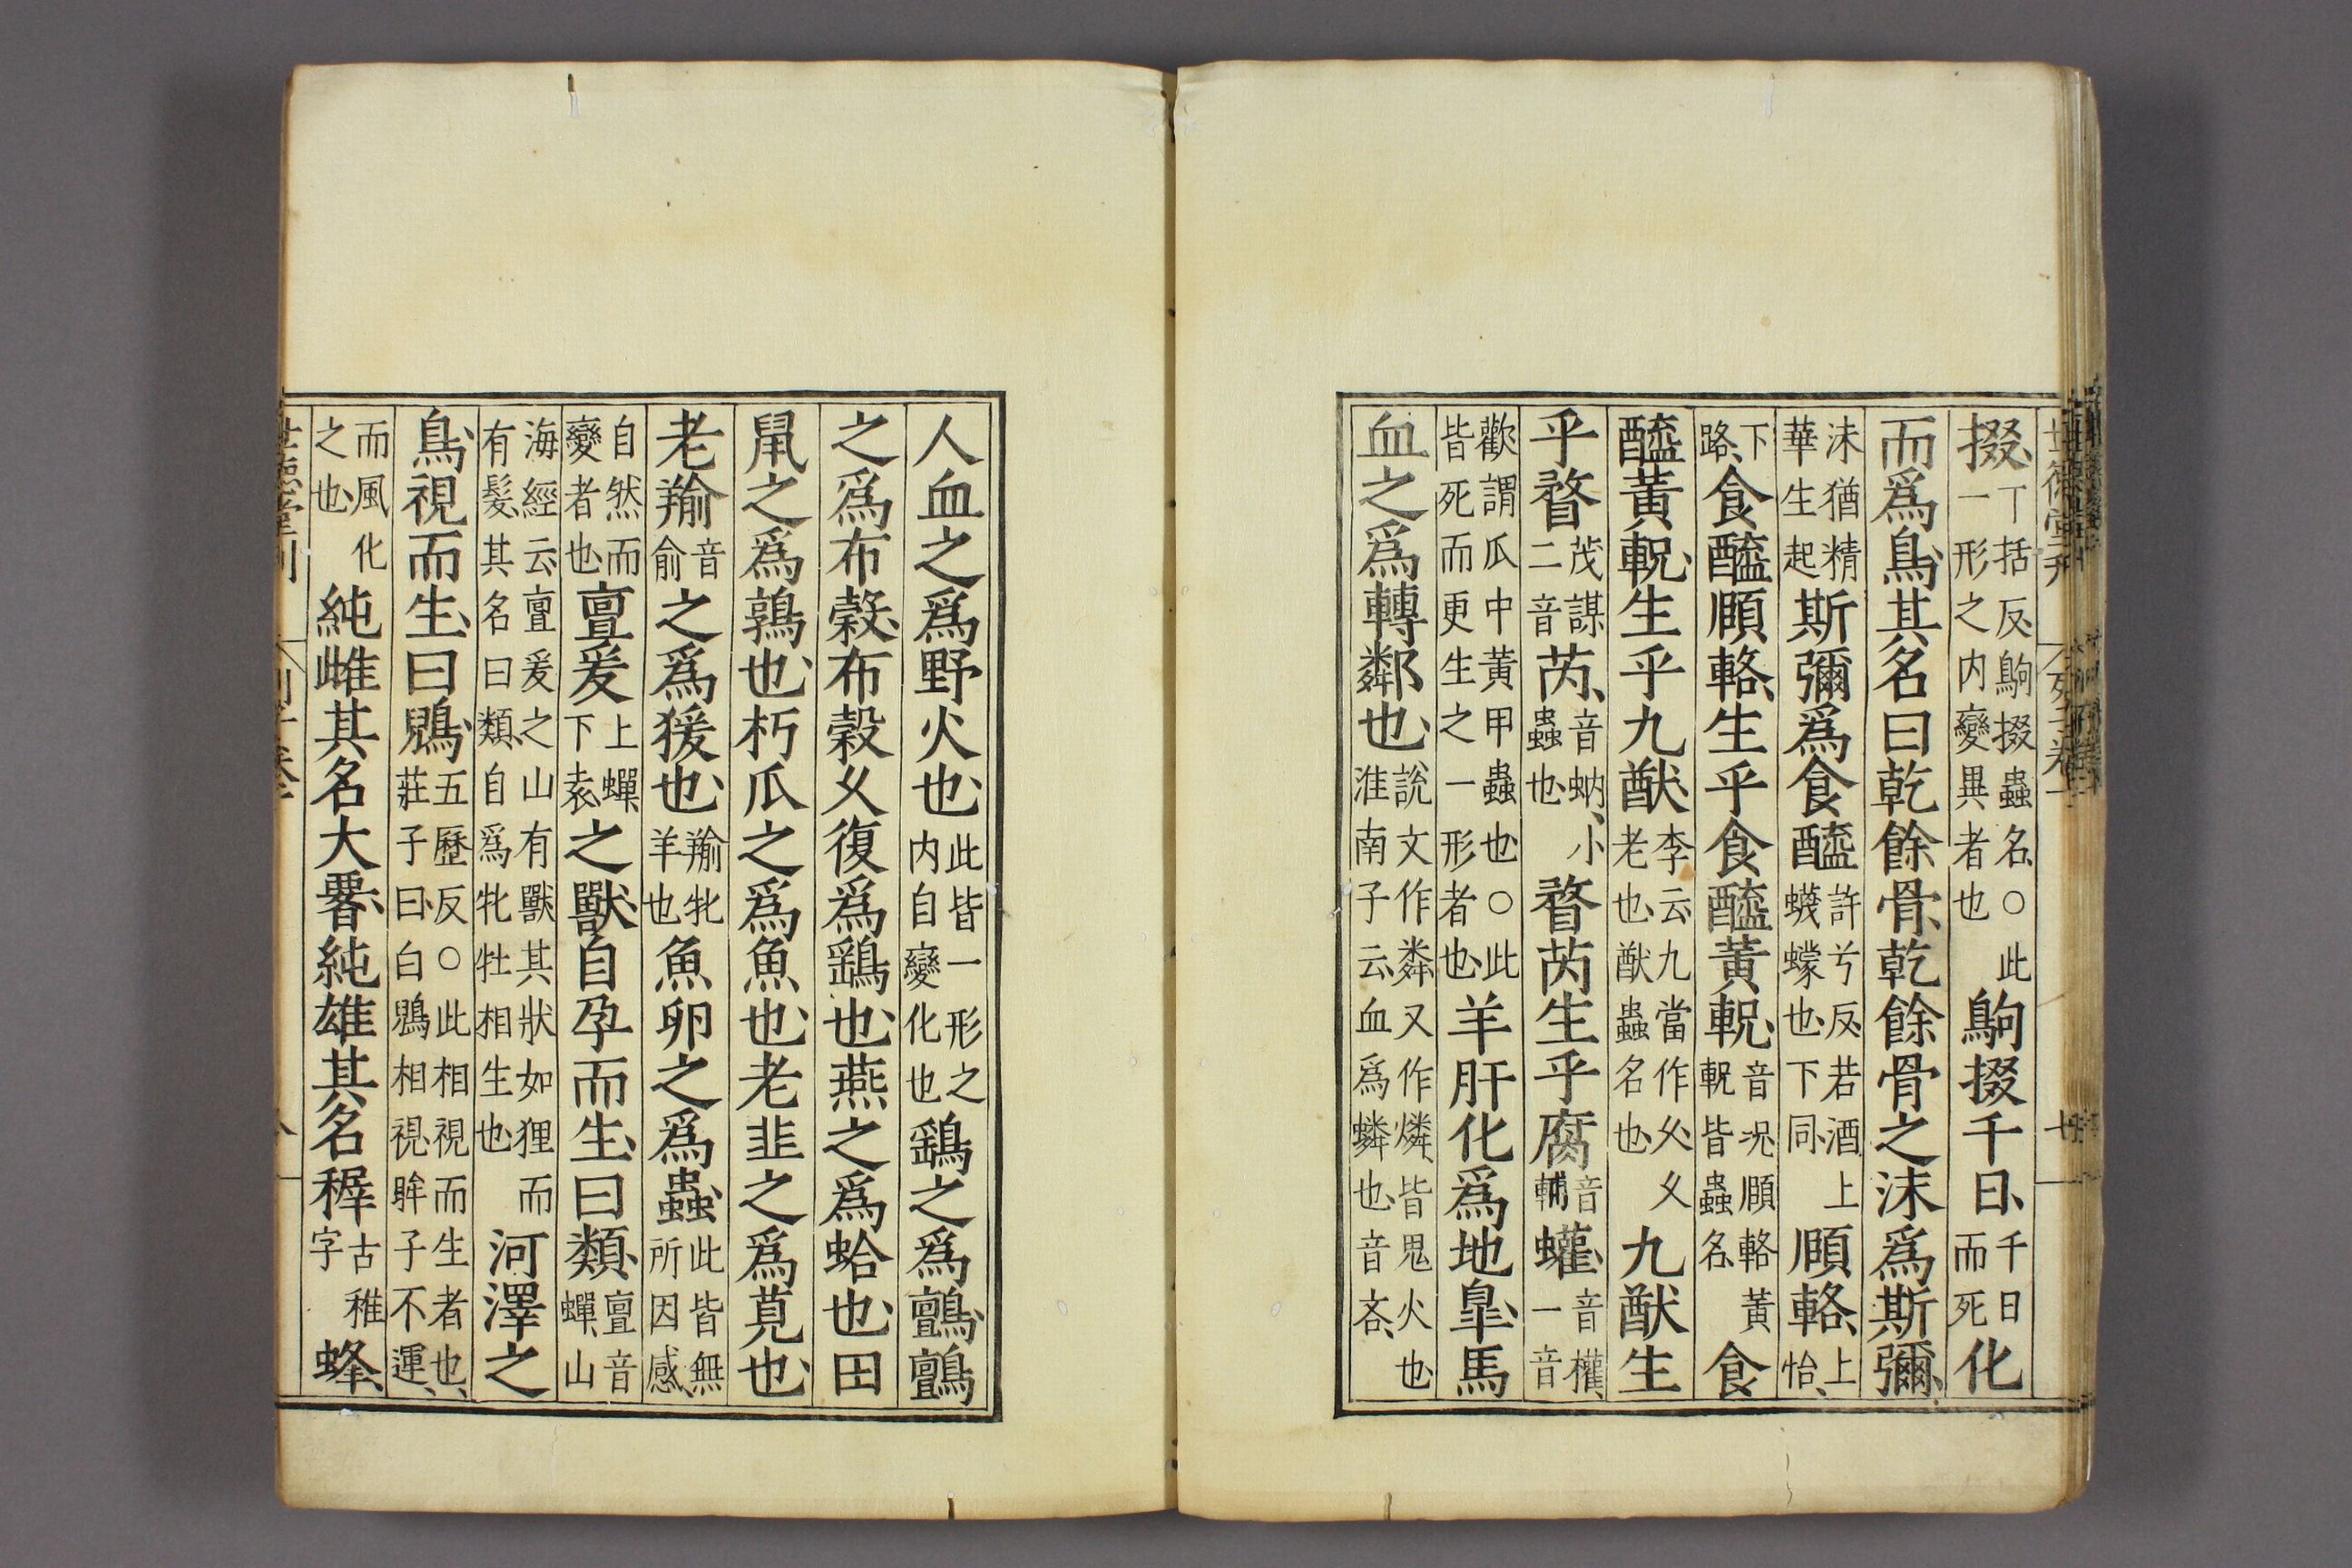 掇丁括反鴝掇蟲名○此一形之内變異者也鴝掇千日千日而死化
而爲鳥其名曰乾餘骨乾餘骨之沫爲斯彌
沬猶精華生起斯彌爲食醯許兮反若酒上蠛蠓也下同頤輅上怡
下路食醯頤輅生乎食醯黃軦音况頤輅黃軦皆蟲名食
醯黃軦生乎九猷李云九當作久久老也猷蟲名也九猷生
乎瞀茂謀二音芮音蚋小蟲也瞀芮生乎腐音輔蠸音權一音
歡謂瓜中黃甲蟲也○此皆死而更生之一形者也羊肝化爲地臯馬
血之爲轉鄰也說文作粦又作燐皆鬼火也淮南子云血爲蟒也音吝
人血之爲野火也此皆一形之内自變化也鷂之爲鸇鸇
之爲布穀布穀久復爲鷂也燕之爲蛤也田
鼠之爲鶉也朽瓜之爲魚也老韭之爲莧也
老羭音俞之爲猨也羭牝羊也魚卵之爲蟲此皆無所因感
自然而變者也亶爰上蟬下袁之獸自孕而生曰類亶音蟬山
海經云亶爰之山有獸其狀如狸而有髮其名曰類自爲牝牡相生也河澤之
鳥視而生曰鶂五歷反○此相視而生者也莊子曰白鶂相視眸子不運
而風化之也純雌其名大䁥純雄其名稺古稚字蜂